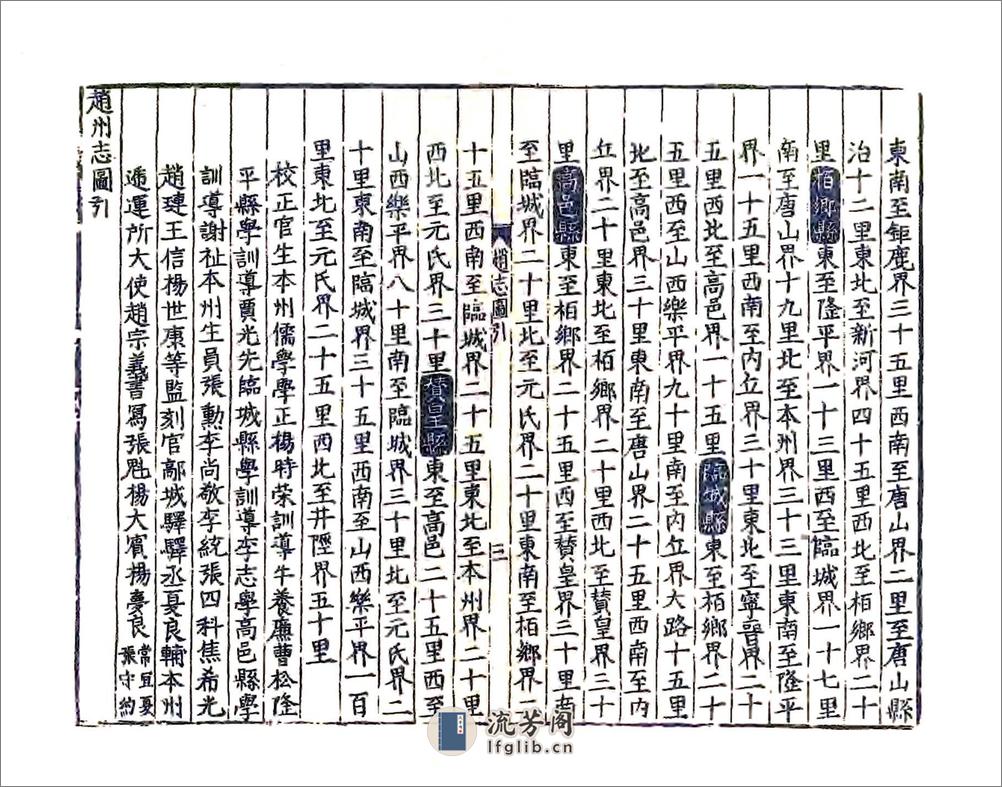 東南至鉅鹿界三十五里西南至唐山界二里至唐山縣
治十二里東北至新河界四十五里西北至栢鄉界二十
里栢鄉縣東至隆平界一十三里西至臨城界一十七里
南至唐山界十九里北至本州界三十三里東南至隆平
界一十五里西南至內丘界三十里東北至寧晉界二十
五里西北至高邑界一十五里臨城縣東至栢鄉界二十
五里西至山西樂平界九十里南至內丘界大路十五里
北至高邑界三十里東南至唐山界二十五里西南至內
丘界二十里東北至栢鄉界二十里西北至贊皇界三十
里高邑縣東至栢鄉界二十五里西至贊皇界三十里南
至臨城界二十里北至元氏界二十里東南至栢鄉界二
趙志圖引
三
十五里西南至臨城界二十五里東北至本州界二十里
西北至元氏界三十里贊皇縣東至高邑二十五里西至
山西樂平界八十里南至臨城界三十里北至元氏界二
十里東南至臨城界三十五里西南至山西樂平界一百
里東北至元氏界二十五里西北至井陘界五十里
校正官生本州儒學學正楊時榮訓導牛養廉曹松隆
平縣學訓導賈光先臨城縣學訓導李志學高邑縣學
訓導謝祉本州生員張勳李尚敬李統張四科焦希光
趙璉王信楊世康等監刻官鄗城驛驛丞夏良輔本州
遞運所大使趙宗義書寫張魁楊大賓楊憂良常宜夏
張守約
趙州志圖引
流芳阁
lfglib.cn